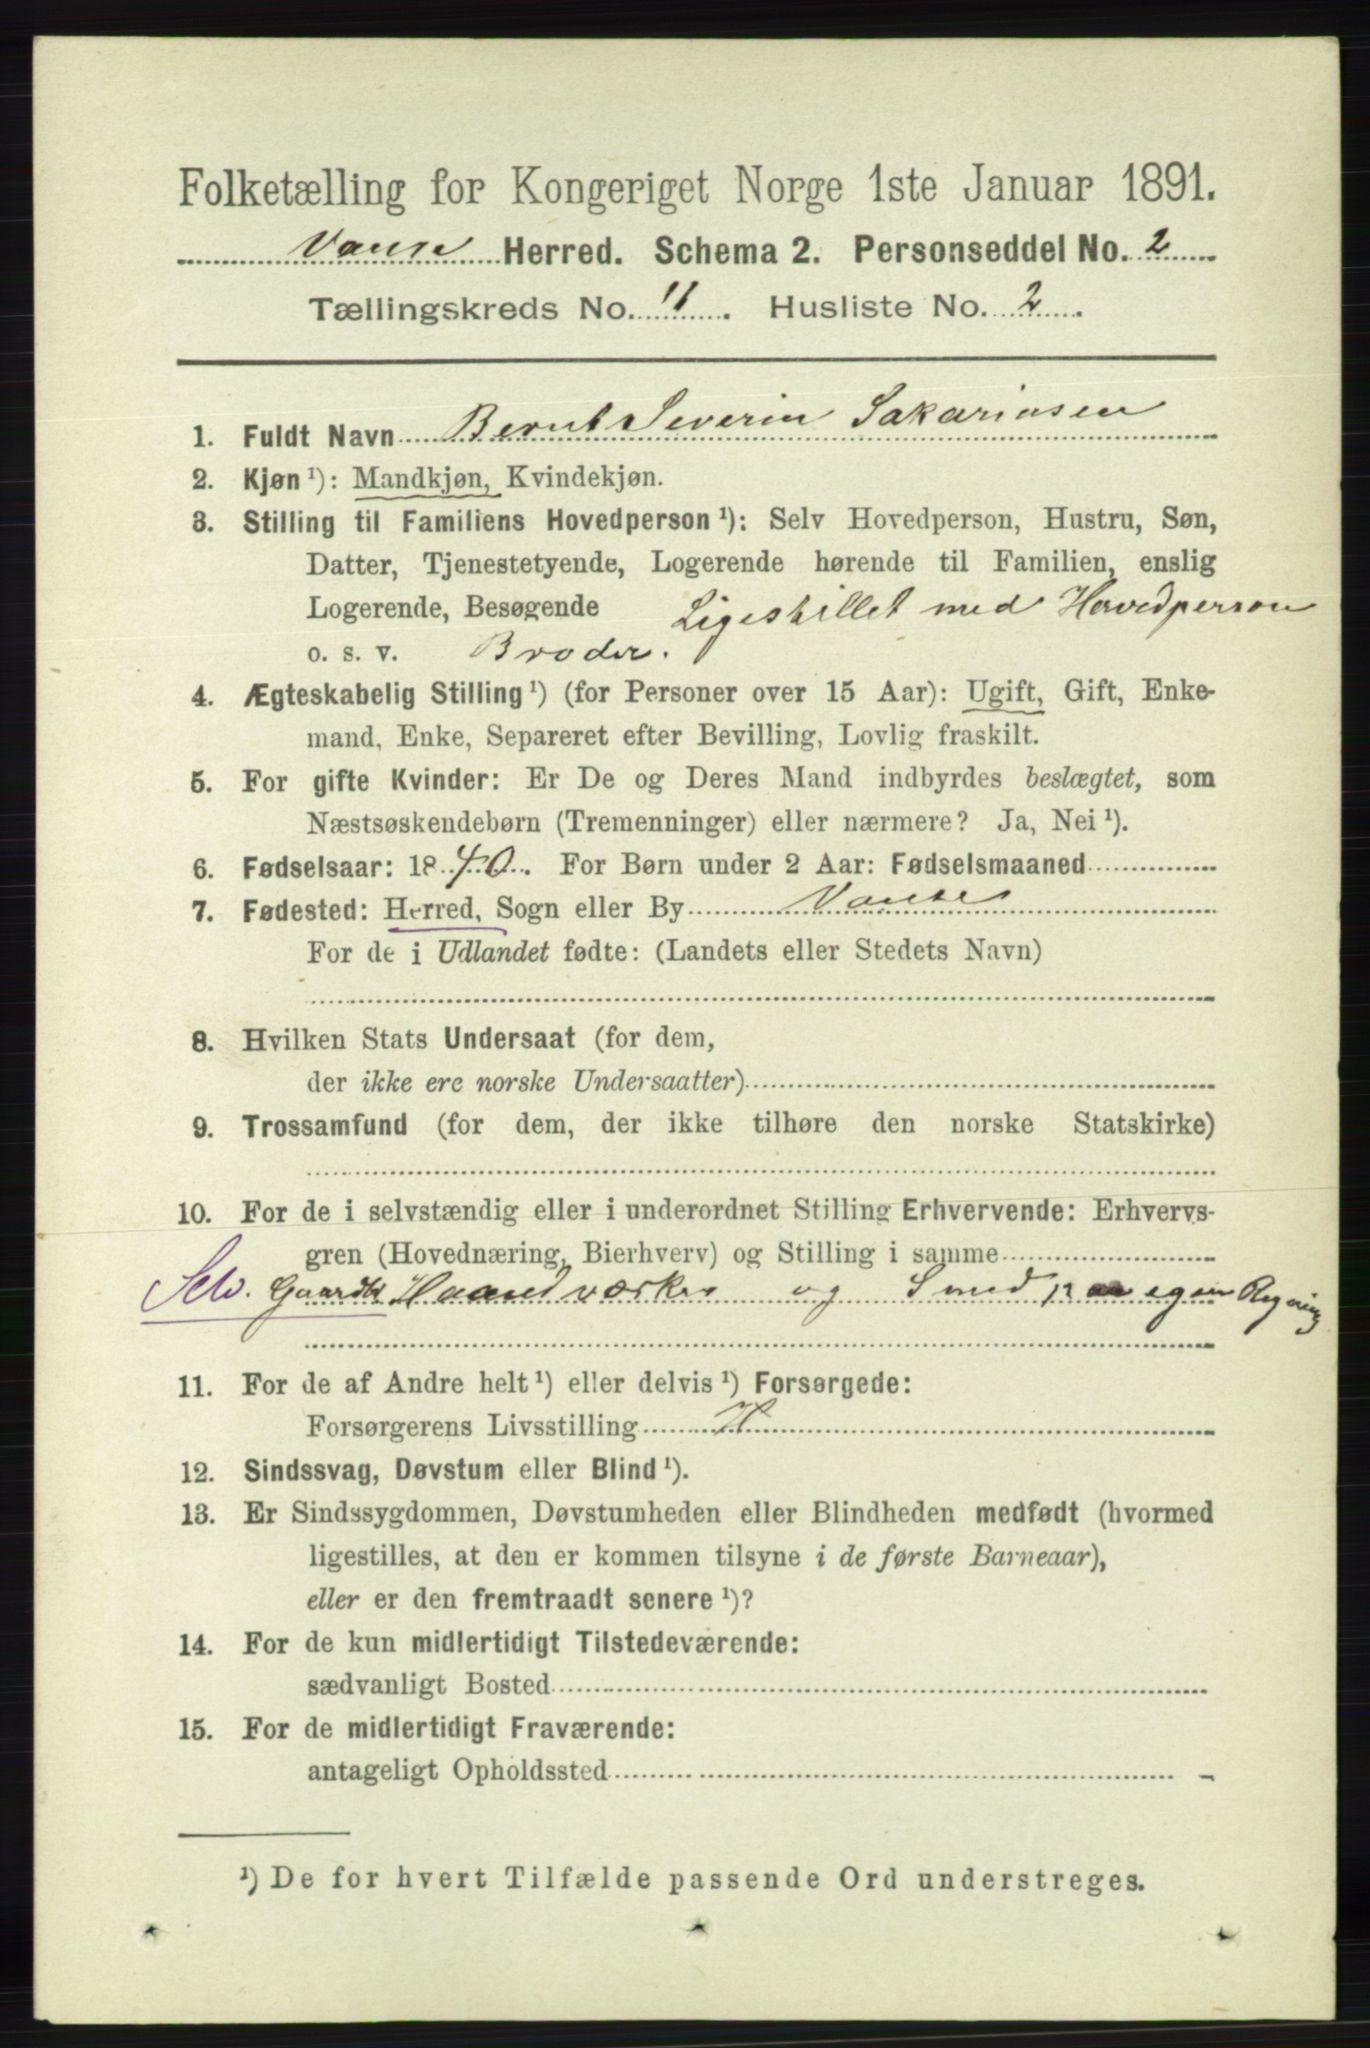 Folketælling for Kongeriget Norge 1ste Januar 1891.
Vanse Herred. Schema 2. Personseddel No. 2
Tællingskreds No. 11. Husliste No. 2.
1. Fuldt Navn Bernt Severin Sakariasen
2. Kjøn ¹): Mandkjøn, Kvindekjøn.
3. Stilling til Familiens Hovedperson ¹): Selv Hovedperson, Hustru, Søn,
Datter, Tjenestetyende, Logerende hørende til Familien, enslig
Logerende, Besøgende Ligestillet med Hovedperson
o. s. v. Broder.
4. Ægteskabelig Stilling ¹) (for Personer over 15 Aar): Ugift, Gift, Enke-
mand, Enke, Separeret efter Bevilling, Lovlig fraskilt.
5. For gifte Kvinder: Er De og Deres Mand indbyrdes beslægtet, som
Næstsøskendebørn (Tremenninger) eller nærmere? Ja, Nei ¹).
6. Fødselsaar: 1840. For Børn under 2 Aar: Fødselsmaaned
7. Fødested: Herred, Sogn eller By Vanse
For de i Udlandet fødte: (Landets eller Stedets Navn)
8. Hvilken Stats Undersaat (for dem,
der ikke ere norske Undersaatter)
9. Trossamfund (for dem, der ikke tilhøre den norske Statskirke)
10. For de i selvstændig eller i underordnet Stilling Erhvervende: Erhvervs-
gren (Hovednæring, Bierhverv) og Stilling i samme
Selv. Gaardb Haandværker og Smed paa egen Regning
11. For de af Andre helt ¹) eller delvis ¹) Forsørgede:
Forsørgerens Livsstilling H
12. Sindssvag, Døvstum eller Blind ¹).
13. Er Sindssygdommen, Døvstumheden eller Blindheden medfødt (hvormed
ligestilles, at den er kommen tilsyne i de første Barneaar),
eller er den fremtraadt senere ¹)?
14. For de kun midlertidigt Tilstedeværende:
sædvanligt Bosted
15. For de midlertidigt Fraværende:
antageligt Opholdssted
¹) De for hvert Tilfælde passende Ord understreges.